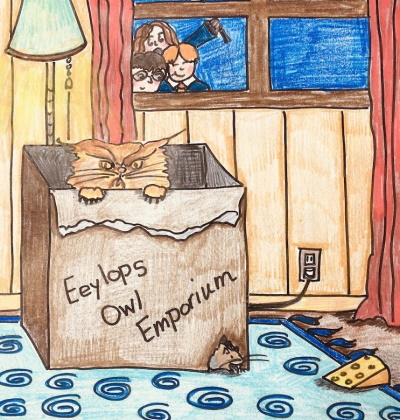 Eeylops
Owl
Emporium